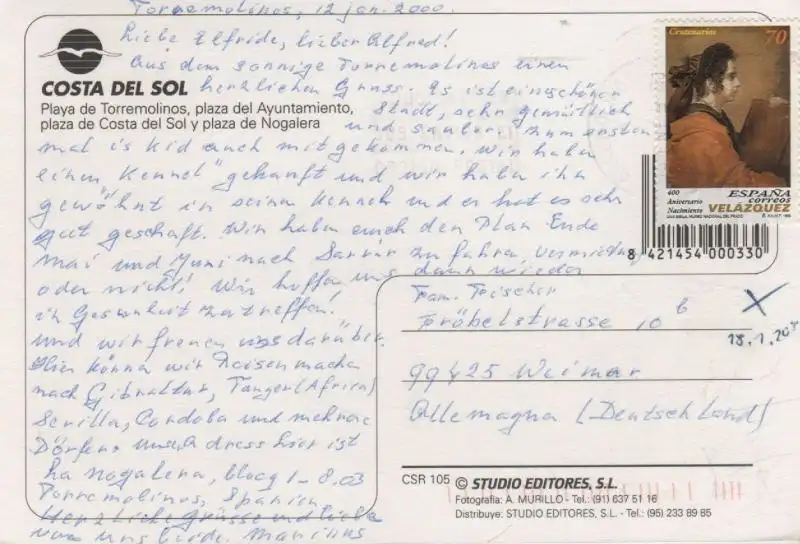 Torremolinos, 12 jan. 2000.
Liebe Elfride, lieber Alfred!
Aus dem sonnige Torremolinos einen
herzlichen Gruss. Es ist ein schönen
Stadt, sehr gemütlich
und sauber, zum ersten
mal is Kid auch mitgekommen. Wir haben
einen Kennel" gekauft und wir haben ihn
gewöhnt in seine Kennel und er hat es sehr
gut geschaft. Wir haben auch den Plan Ende
Mai und Juni nach zu fahren,
oder nicht! Wir hoffen uns dann wieder
in Gesunheit zu treffen!
und wir freuen uns darüber.
Hier könne wir Reisen machen
nach Gibraltar, Tanger (Africa)
Sevilla, Cordoba und mehrere
Dörfer. Unse Adress hier ist
La Nogalera, blocq 1-8.03
Torremolinos, Spanien
Herzliche Grüsse und liebe
von uns beide. Marinus
COSTA DEL SOL
Playa de Torremolinos, plaza del Ayuntamiento,
plaza de Costa del Sol y plaza de Nogalera
Centenarios 70
400
Aniversario
Nacimiento
ESPAÑA
correos
VELÁZQUEZ
8 421454 000330
Fam. Fischer
Fröbelstrasse 10 b
99425 Weimar
Allemagna (Deutschland)
X
18.1.20
CSR 105 © STUDIO EDITORES, S.L.
Fotografía: A. MURILLO - Tel.: (91) 637 51 16
Distribuye: STUDIO EDITORES, S.L. - Tel.: (95) 233 89 85